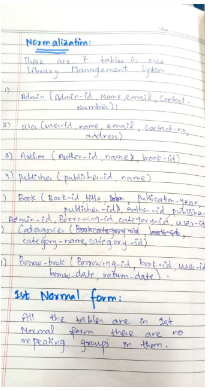 Normalization:
There are 7 tables in our
Library Management System
1)
Admin (Admin-id, Name, email, Contact-
number);
2) User (user-id, name, email, Contact-no,
address)
3) Author (Author-id, name, book-id)
4) Publisher (publisher-id, name)
) Book (Book-id, title, Publication-year,
publisher-id, Author-id, publisher-
Admin-id, Borrowing-id, category-id, user-id
) Categories (
category-name, category-id)
) Borrow-book (Borrowing-id, book-id, user-id
borrow-date, return-date)
1st Normal form:
All the tables are in 1st
Normal form there are no
repeating groups in them.